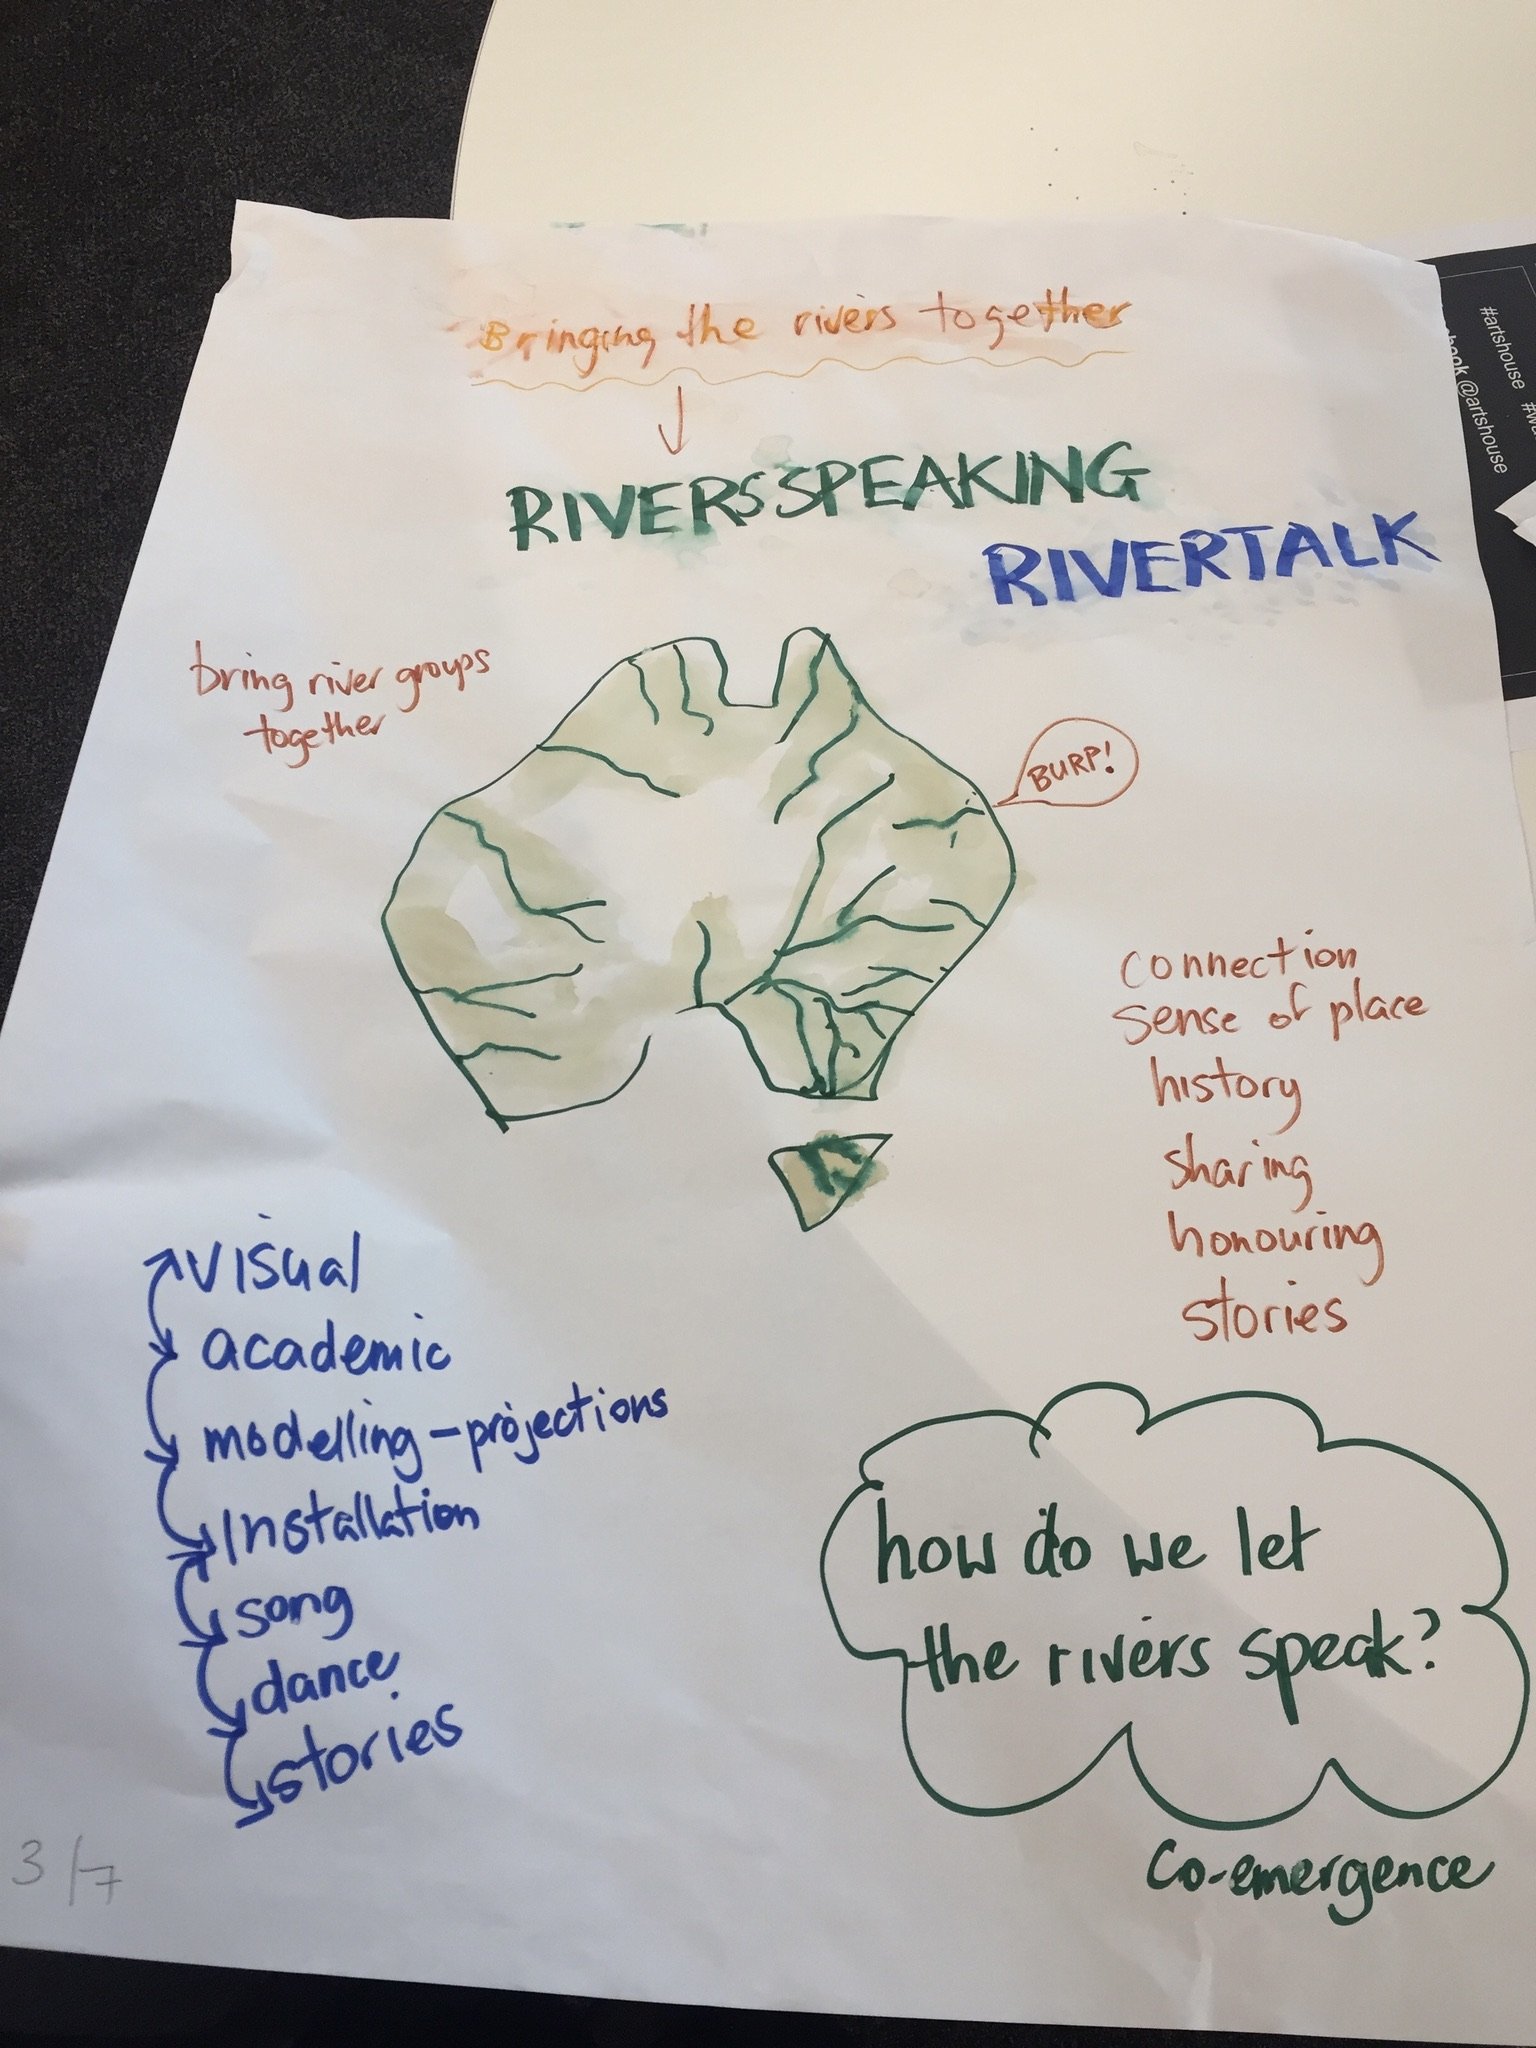 Bringing the rivers together
RIVERSSPEAKING
RIVERTALK
bring river groups
together
BURP!
connection
sense of place
history
sharing
honouring
stories
visual
academic
modelling - projections
Installation
song
dance
stories
how do we let
the rivers speak?
Co-emergence
3/7
#artshouse
@artshouse